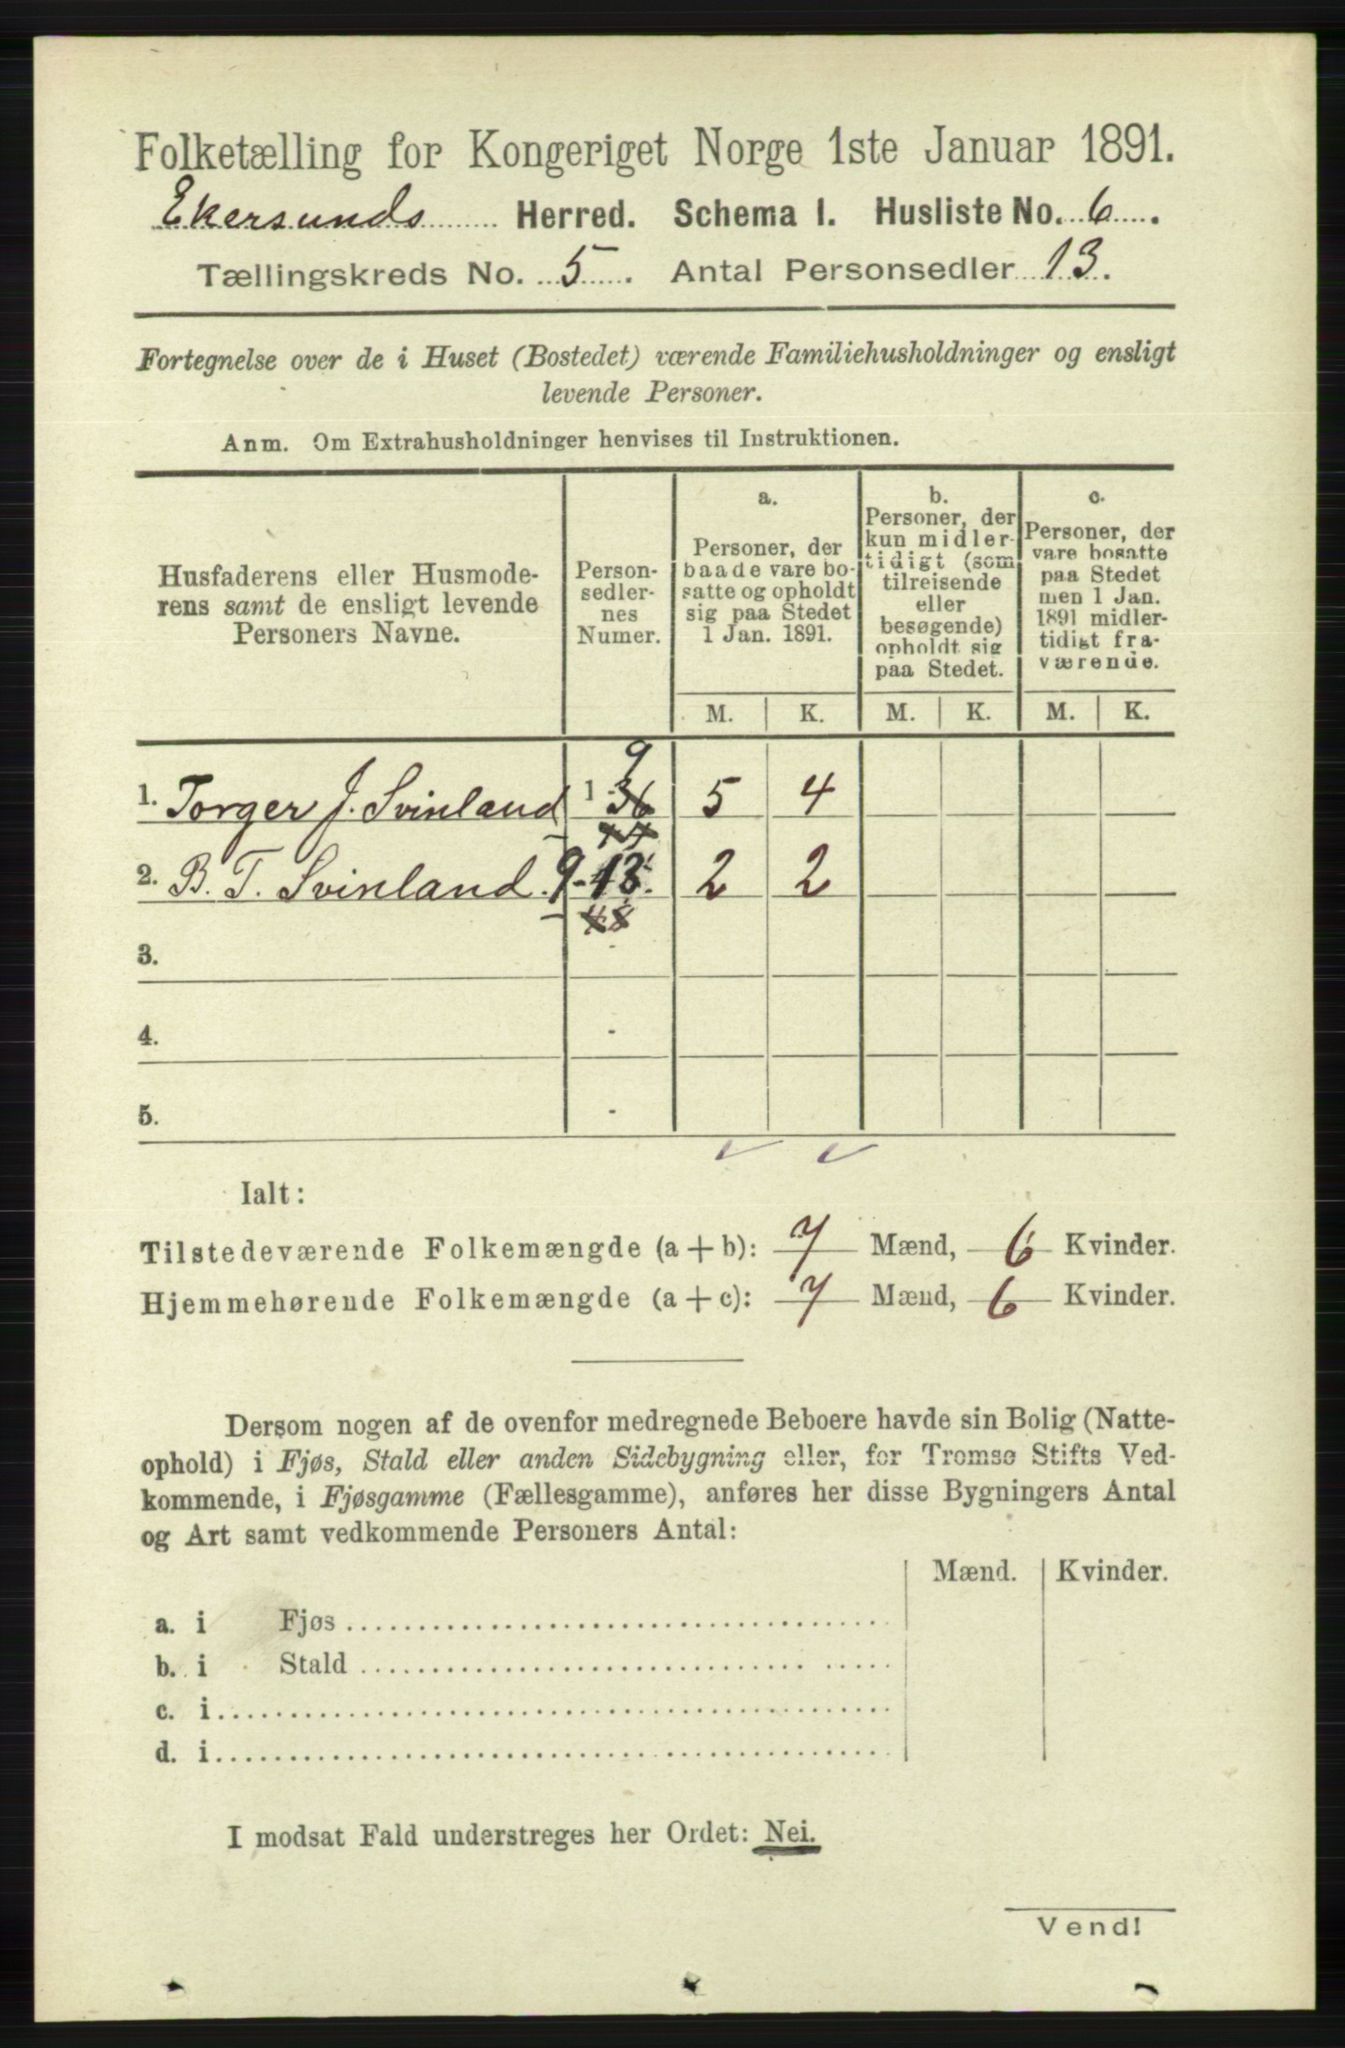 Folketælling for Kongeriget Norge 1ste Januar 1891.
Ekersunds Herred. Schema I. Husliste No. 6.
Tællingskreds No. 5. Antal Personsedler 13.
Fortegnelse over de i Huset (Bostedet) værende Familiehusholdninger og ensligt
levende Personer.
Anm. Om Extrahusholdninger henvises til Instruktionen.
Husfaderens eller Husmode-
rens samt de ensligt levende
Personers Navne.
Person-
sedler-
nes
Numer.
a.
Personer, der
baade vare bo-
satte og opholdt
sig paa Stedet
1 Jan. 1891.
b.
Personer, der
kun midler-
tidigt (som
tilreisende
eller
besøgende)
opholdt sig
paa Stedet.
c.
Personer, der
vare bosatte
paa Stedet
men 1 Jan.
1891 midler-
tidigt fra-
værende.
M. K. M. K. M. K.
9
1. Torger J. Svinland 1 - 36 5 4
44
2. B. T. Svinland 9 - 13. 2 2
48
3. -
4. -
5. -
Ialt:
Tilstedeværende Folkemængde (a + b): 7 Mænd, 6 Kvinder.
Hjemmehørende Folkemængde (a + c): 7 Mænd, 6 Kvinder.
Dersom nogen af de ovenfor medregnede Beboere havde sin Bolig (Natte-
ophold) i Fjøs, Stald eller anden Sidebygning eller, for Tromsø Stifts Ved-
kommende, i Fjøsgamme (Fællesgamme), anføres her disse Bygningers Antal
og Art samt vedkommende Personers Antal:
Mænd. Kvinder.
a. i Fjøs
b. i Stald
c. i
d. i
I modsat Fald understreges her Ordet: Nei.
Vend!